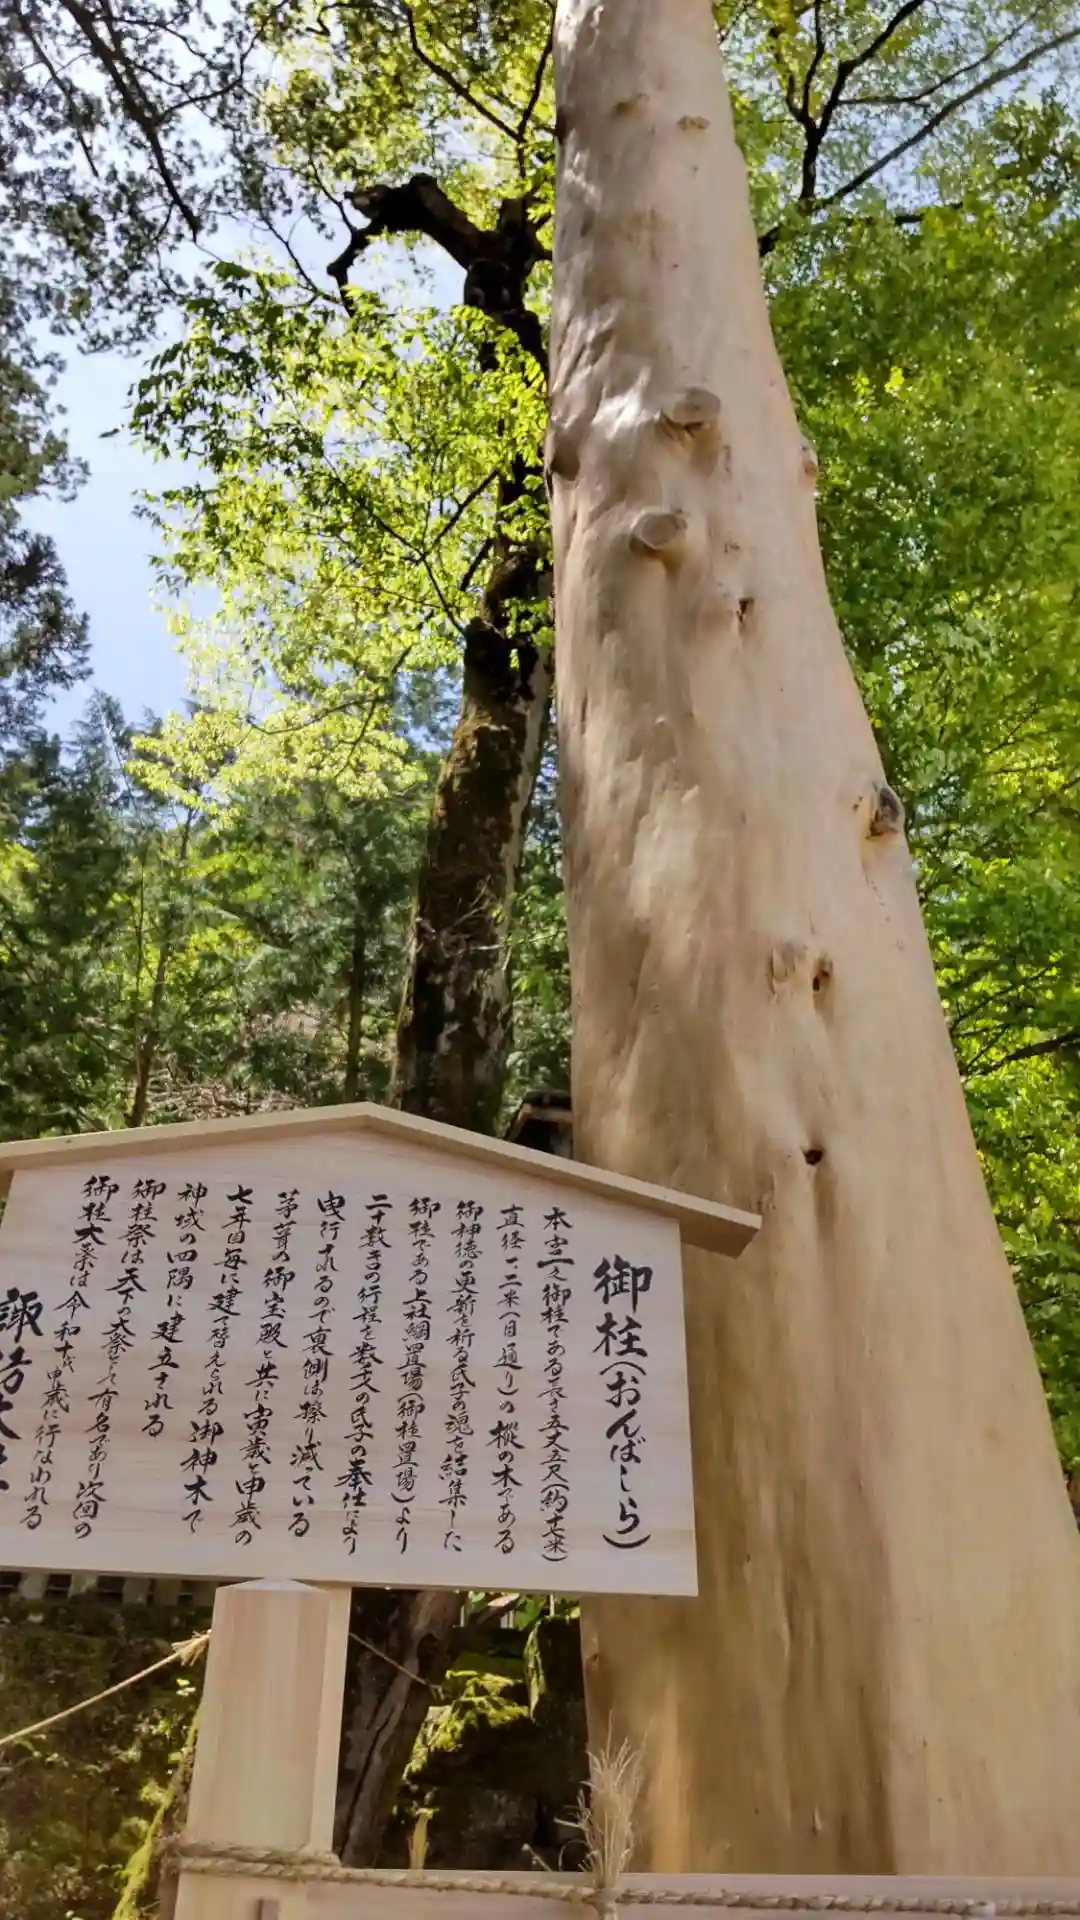 御柱(おんばしら)
本宮一之御柱である長さ五丈五尺(約十七米)
直径一、二米(目通り)の樅の木である
御神徳の更新を祈る氏子の魂を結集した
御柱である上社綱置場(御柱置場)より
二十数粁の行程を数千人の氏子の奉仕により
曳行されるので裏側は擦り減っている
茅葺の御宝殿と共に寅歳と申歳の
七年目毎に建て替えられる御神木で
神域の四隅に建立される
御柱祭は天下の大祭として有名であり次回の
御柱大祭は令和十年申歳に行なわれる
諏訪大社